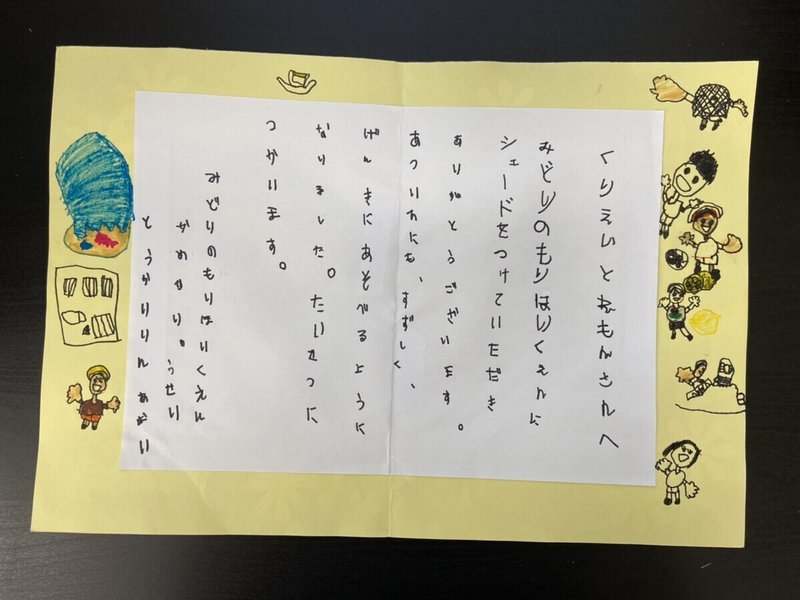 くりえいとれもんさんへ
みどりのもりほいくえんに
シェードをつけていただき
ありがとうございます。
あついひにも、すずしく、
げんきにあそべるように
なりました。たいせつに
つかいます。
みどりのもりほいくえん